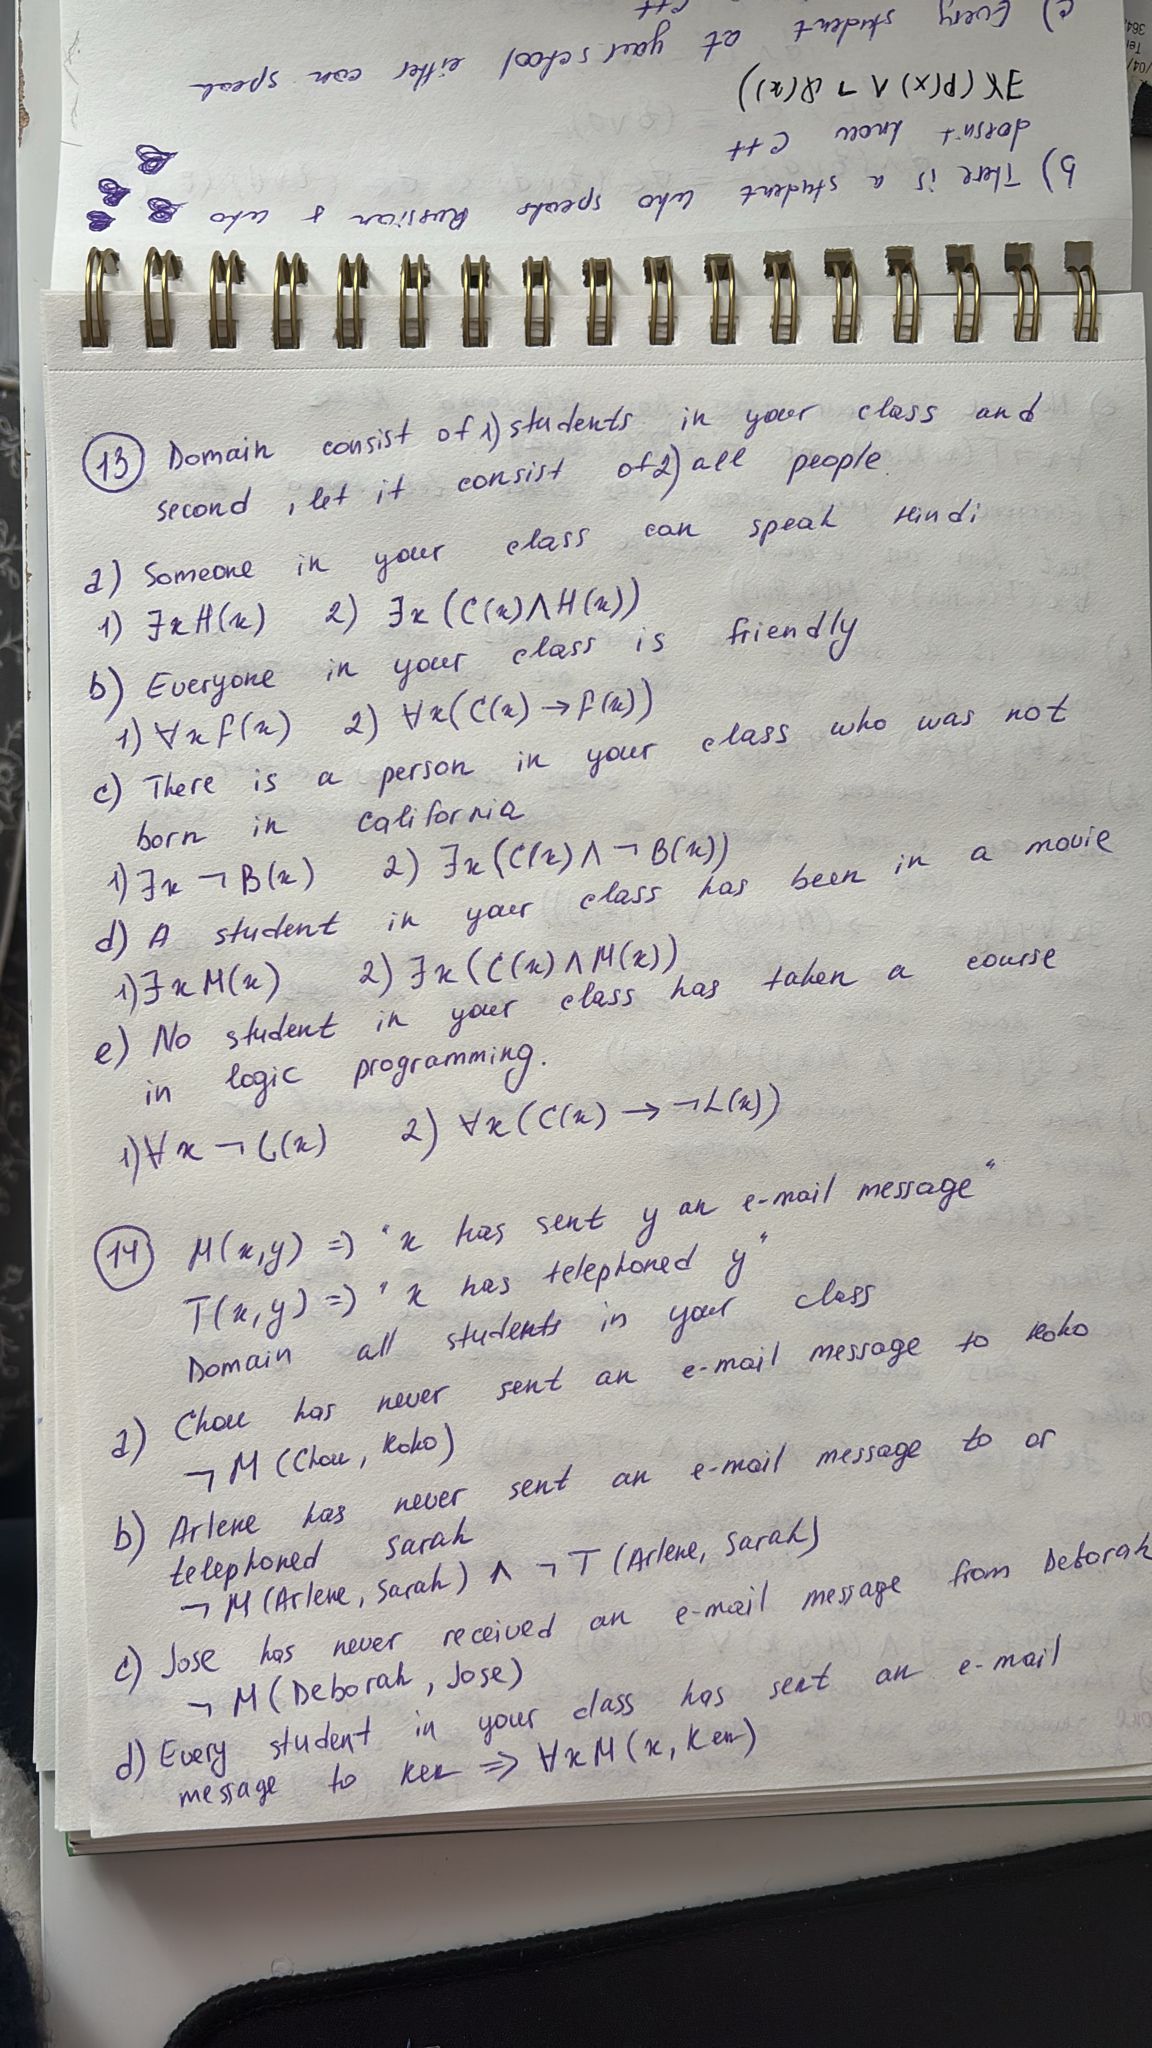 c) Every student at your school either can speak
C++
∃x (P(x) ∧ ¬ Q(x))
doesn't know C++
b) There is a student who speaks Russian & who
13 Domain consist of 1) students in your class and
second, let it consist of 2) all people.
a) Someone in your class can speak Hindi
1) ∃x H(x) 2) ∃x (C(x) ∧ H(x))
b) Everyone in your class is friendly
1) ∀x F(x) 2) ∀x (C(x) → F(x))
c) There is a person in your class who was not
born in California
1) ∃x ¬ B(x) 2) ∃x (C(x) ∧ ¬ B(x))
d) A student in your class has been in a movie
1) ∃x M(x) 2) ∃x (C(x) ∧ M(x))
e) No student in your class has taken a course
in logic programming.
1) ∀x ¬ L(x) 2) ∀x (C(x) → ¬L(x))
14 M(x,y) => "x has sent y an e-mail message"
T(x,y) => "x has telephoned y"
Domain all students in your class
a) Chou has never sent an e-mail message to Koko
¬ M (Chou, Koko)
b) Arlene has never sent an e-mail message to or
telephoned Sarah
¬ M (Arlene, Sarah) ∧ ¬ T (Arlene, Sarah)
c) Jose has never received an e-mail message from Deborah
¬ M (Deborah, Jose)
d) Every student in your class has sent an e-mail
message to Ken => ∀x M (x, Ken)